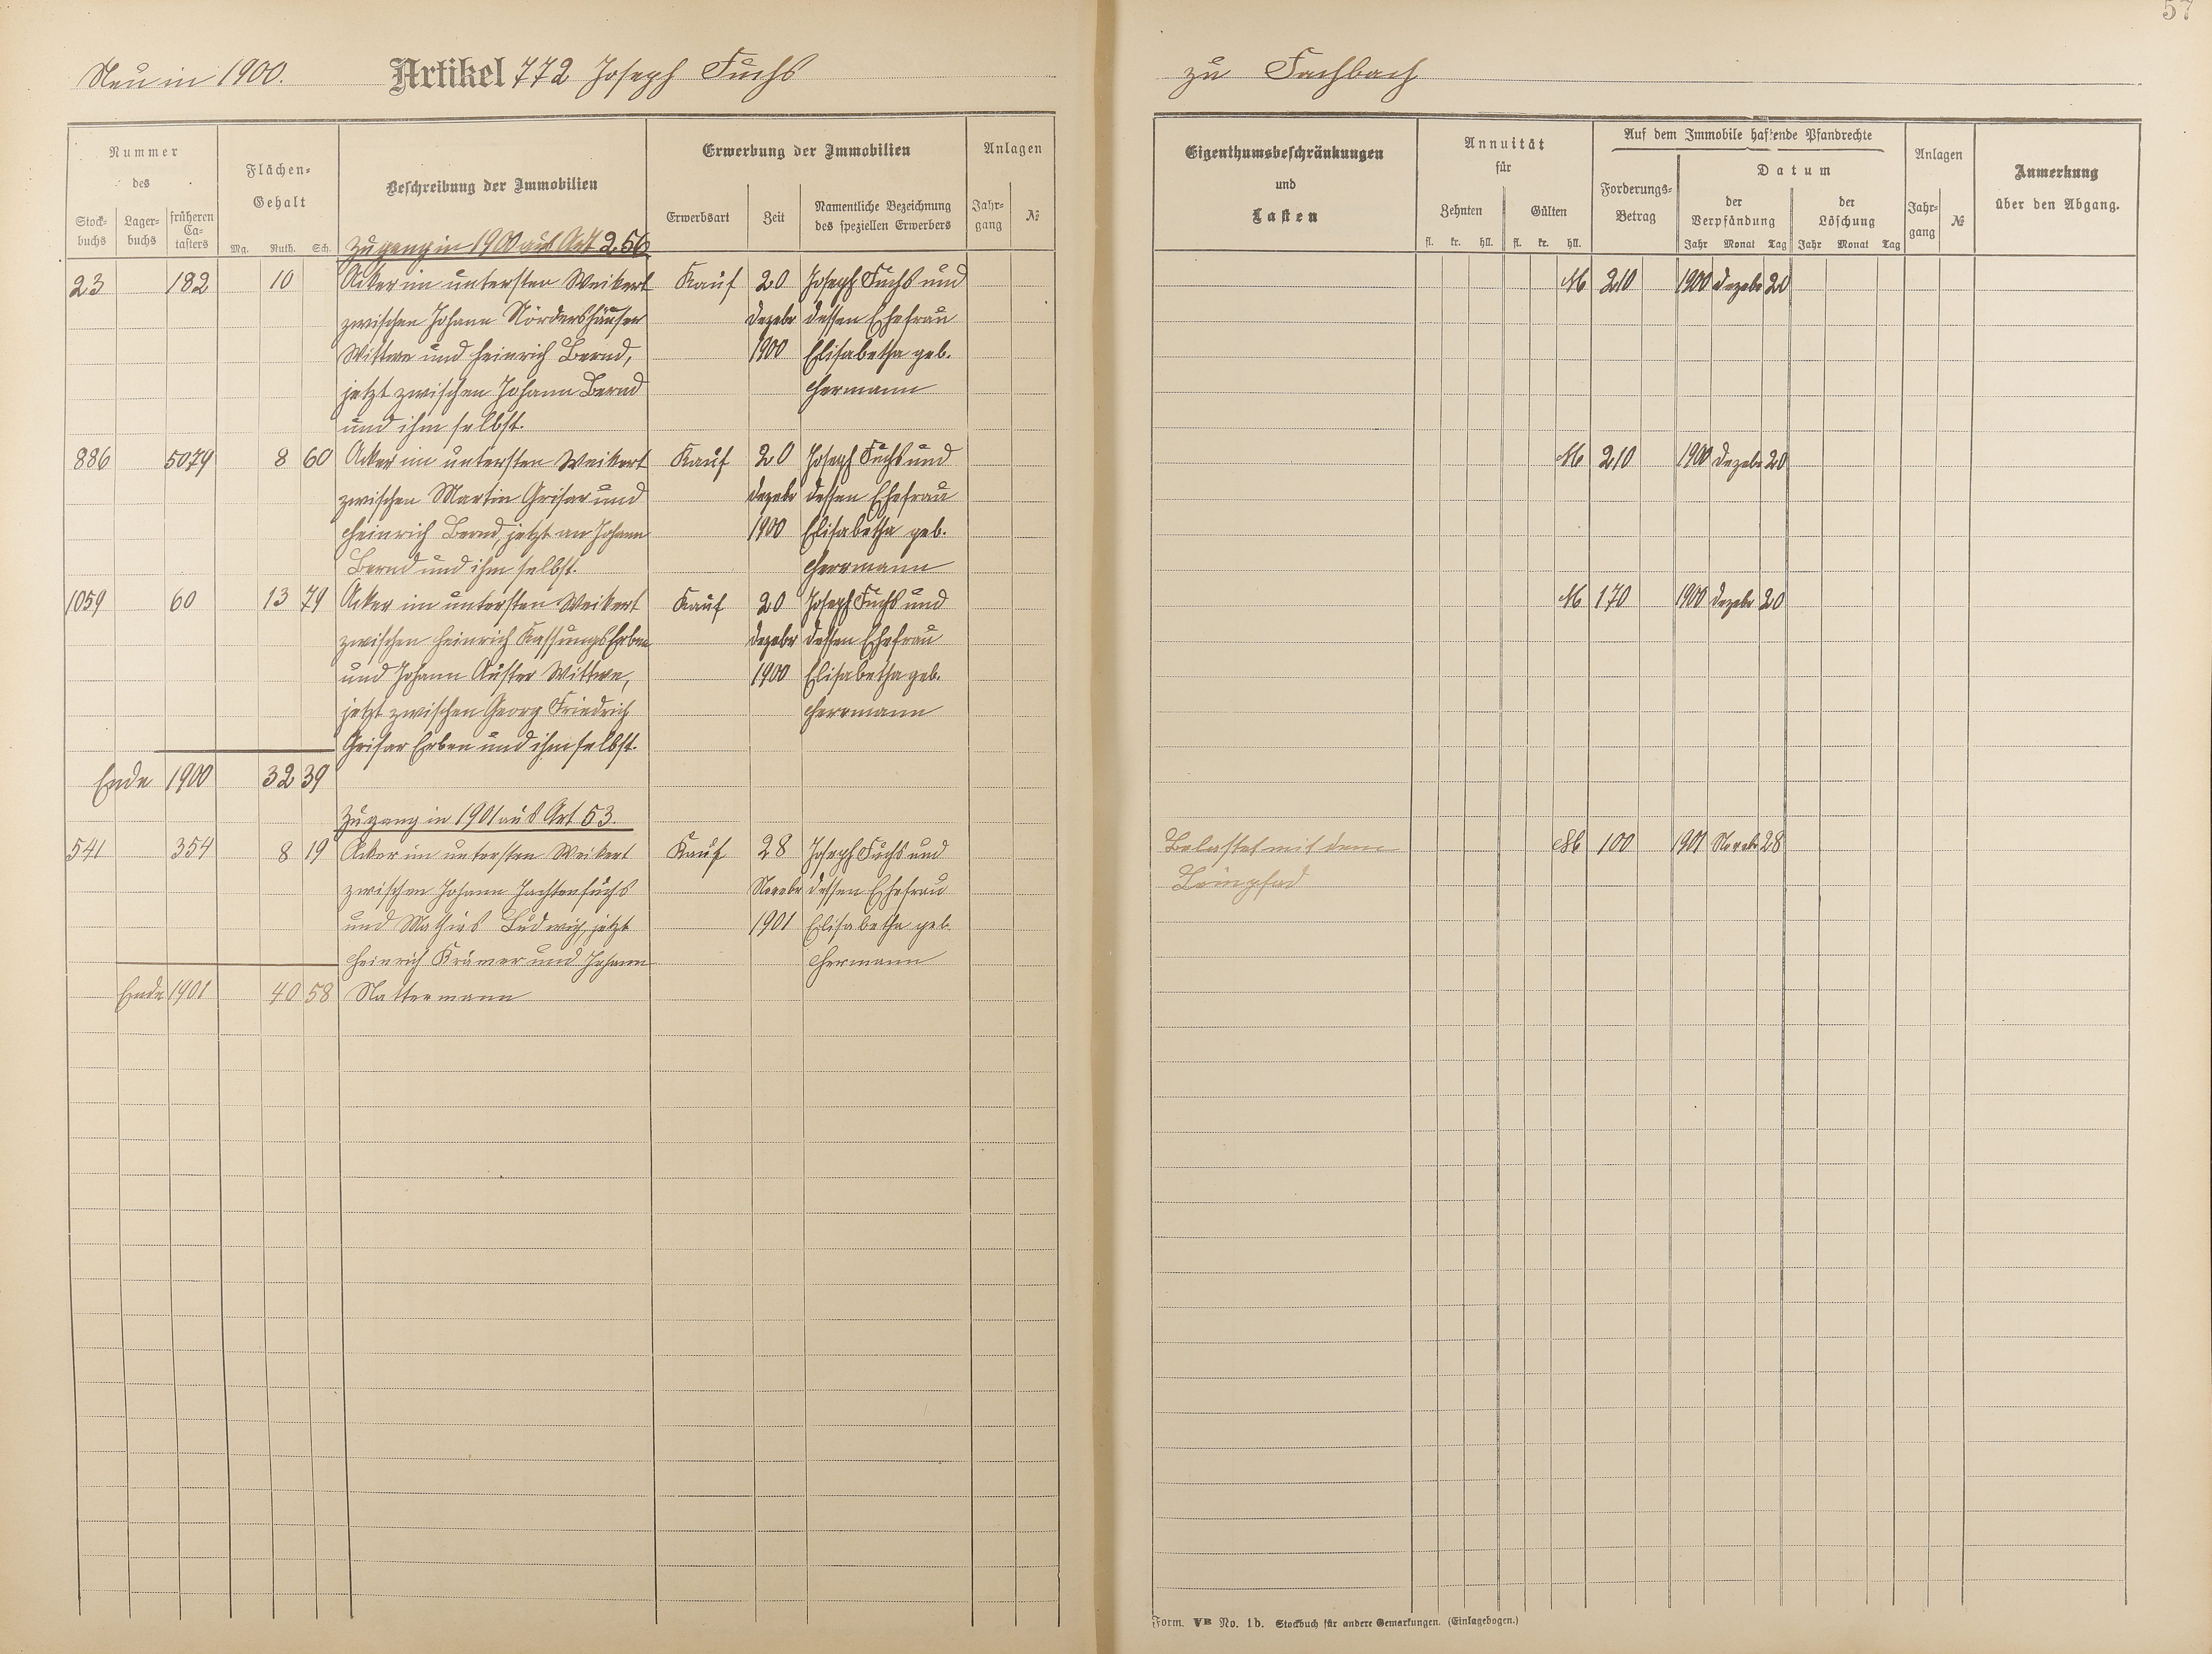 57
Neu in 1900. Artikel 772 Joseph Fuchs
zu Fachbach
Nummer des
Stock-buchs Lager-buchs früheren Ca-tasters
Flächen-Gehalt
Mg. Ruth. Sch.
Beschreibung der Immobilien
Erwerbung der Immobilien
Erwerbsart Zeit Namentliche Bezeichnung des speziellen Erwerbers
Anlagen
Jahr-gang №
Eigenthumsbeschränkungen und Lasten
Annuität für
Zehnten Gülten
fl. kr. hll. fl. kr. hll.
Auf dem Immobile haftende Pfandrechte
Forderungs-Betrag
Datum
der Verpfändung der Löschung
Jahr Monat Tag Jahr Monat Tag
Anlagen
Jahr-gang №
Anmerkung über den Abgang.
Zugang in 1900 aus Art 256
23 182 10 Acker im untersten Weikert Kauf 20 Joseph Fuchs und M 210 1900 Dezebr 20
zwischen Johann Nördershäuser Dezebr dessen Ehefrau
Wittwe und Heinrich Bernd, 1900 Elisabetha geb.
jetzt zwischen Johann Bernd Hermann
und ihm selbst.
886 5079 8 60 Acker im untersten Weikert Kauf 20 Joseph Fuchs und M 210 1900 Dezebr 20
zwischen Martin Grisar und Dezebr dessen Ehefrau
Heinrich Bernd, jetzt an Johann 1900 Elisabetha geb.
Bernd und ihm selbst. Herrmann
1059 60 13 79 Acker im untersten Weikert Kauf 20 Joseph Fuchs und M 170 1900 Dezebr 20
zwischen Heinrich Erben Dezebr dessen Ehefrau
und Johann Auster Wittwe, 1900 Elisabetha geb.
jetzt zwischen Georg Friedrich Herrmann
Grisar Erben und ihm selbst.
Ende 1900 32 39
Zugang in 1901 aus Art 53.
541 354 8 19 Acker im untersten Weikert Kauf 28 Joseph Fuchs und Belastet mit dem M 100 1901 Novebr 28
zwischen Johann Jachtenfuchs Novebr dessen Ehefrau Leinpfad
und Mathias Ludwig, jetzt 1901 Elisabetha geb.
Heinrich Krämer und Johann Hermann
Ende 1901 40 58 Nattermann
Form. VB No. 1b. Stockbuch für andere Gemarkungen. (Einlagebogen.)